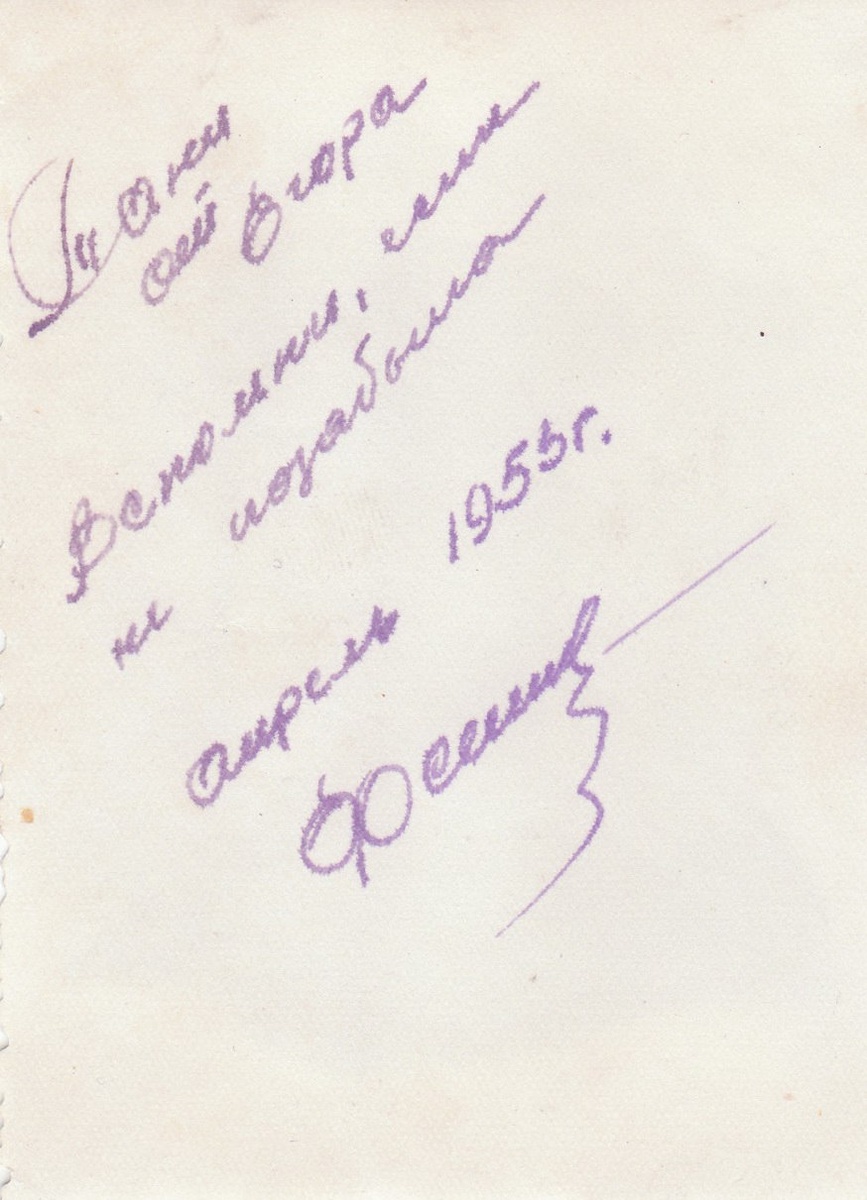 Тани
от Егора
Вспомни, если
не позабыла
апрель 1955г.